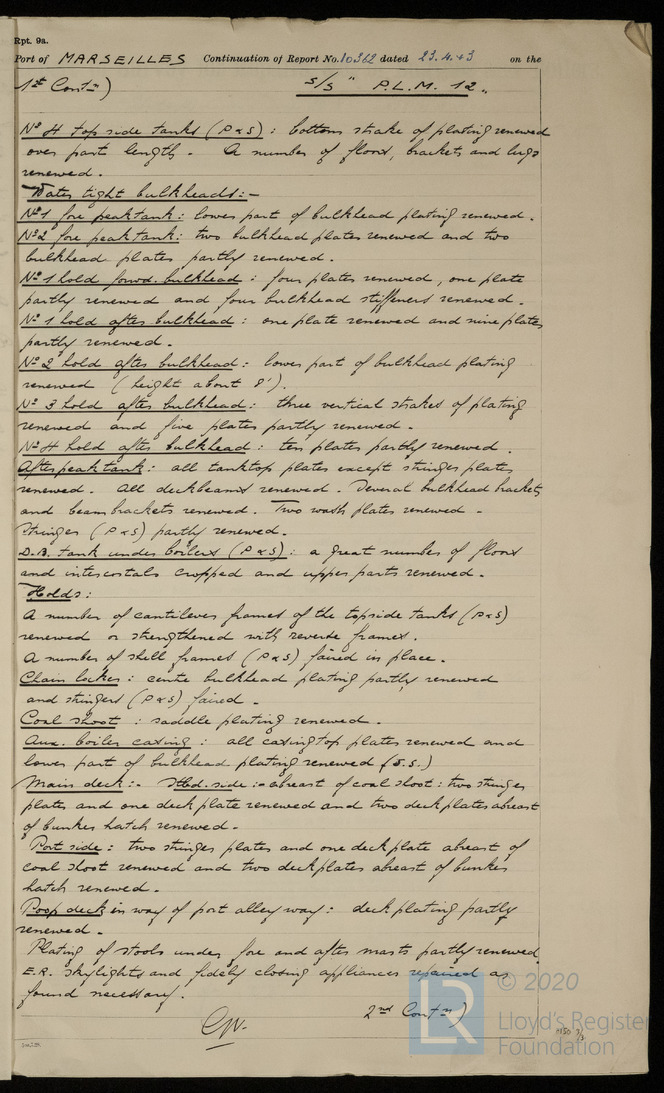 Rpt. 9a.
Port of MARSEILLES Continuation of Report No. 10362 dated 23.4.43 on the
1st Contn) S/S " P.L.M. 12 "
No 4 top side tanks (P & S) : bottom strake of plating renewed
over part length. A number of floors, brackets and lugs
renewed.
Water tight bulkheads :-
No 1 fore peak tank : lower part of bulkhead plating renewed.
No 2 fore peak tank : two bulkhead plates renewed and two
bulkhead plates partly renewed.
No 1 hold forwd. bulkhead : four plates renewed, one plate
partly renewed and four bulkhead stiffeners renewed.
No 1 hold after bulkhead : one plate renewed and nine plates
partly renewed.
No 2 hold after bulkhead : lower part of bulkhead plating
renewed (height about 8').
No 3 hold after bulkhead : three vertical strakes of plating
renewed and five plates partly renewed.
No 4 hold after bulkhead : ten plates partly renewed.
After peak tank : all tanktop plates except stringer plates
renewed. All deckbeams renewed. Several bulkhead brackets
and beam brackets renewed. Two wash plates renewed.
Stringer (P & S) partly renewed.
D.B. tank under boilers (P & S) : a great number of floors
and intercostals cropped and upper parts renewed.
Holds :
A number of cantilever frames of the topside tanks (P & S)
renewed or strengthened with reverse frames.
A number of shell frames (P & S) faired in place.
Chain locker : centre bulkhead plating partly renewed
and stringers (P & S) faired.
Coal shoot : saddle plating renewed.
Aux. boiler casing : all casing top plates renewed and
lower part of bulkhead plating renewed (S.S.)
Main deck :- Stbd. side :- abreast of coal shoot : two stringer
plates and one deck plate renewed and two deck plates abreast
of bunker hatch renewed.
Port side : two stringer plates and one deck plate abreast of
coal shoot renewed and two deckplates abreast of bunker
hatch renewed.
Poop deck in way of port alley way : deck plating partly
renewed.
Plating of stools under fore and after masts partly renewed
E.R. skylights and fidely closing appliances repaired as
found necessary.
2nd Contn)
© 2020
LR
Lloyd's Register
Foundation